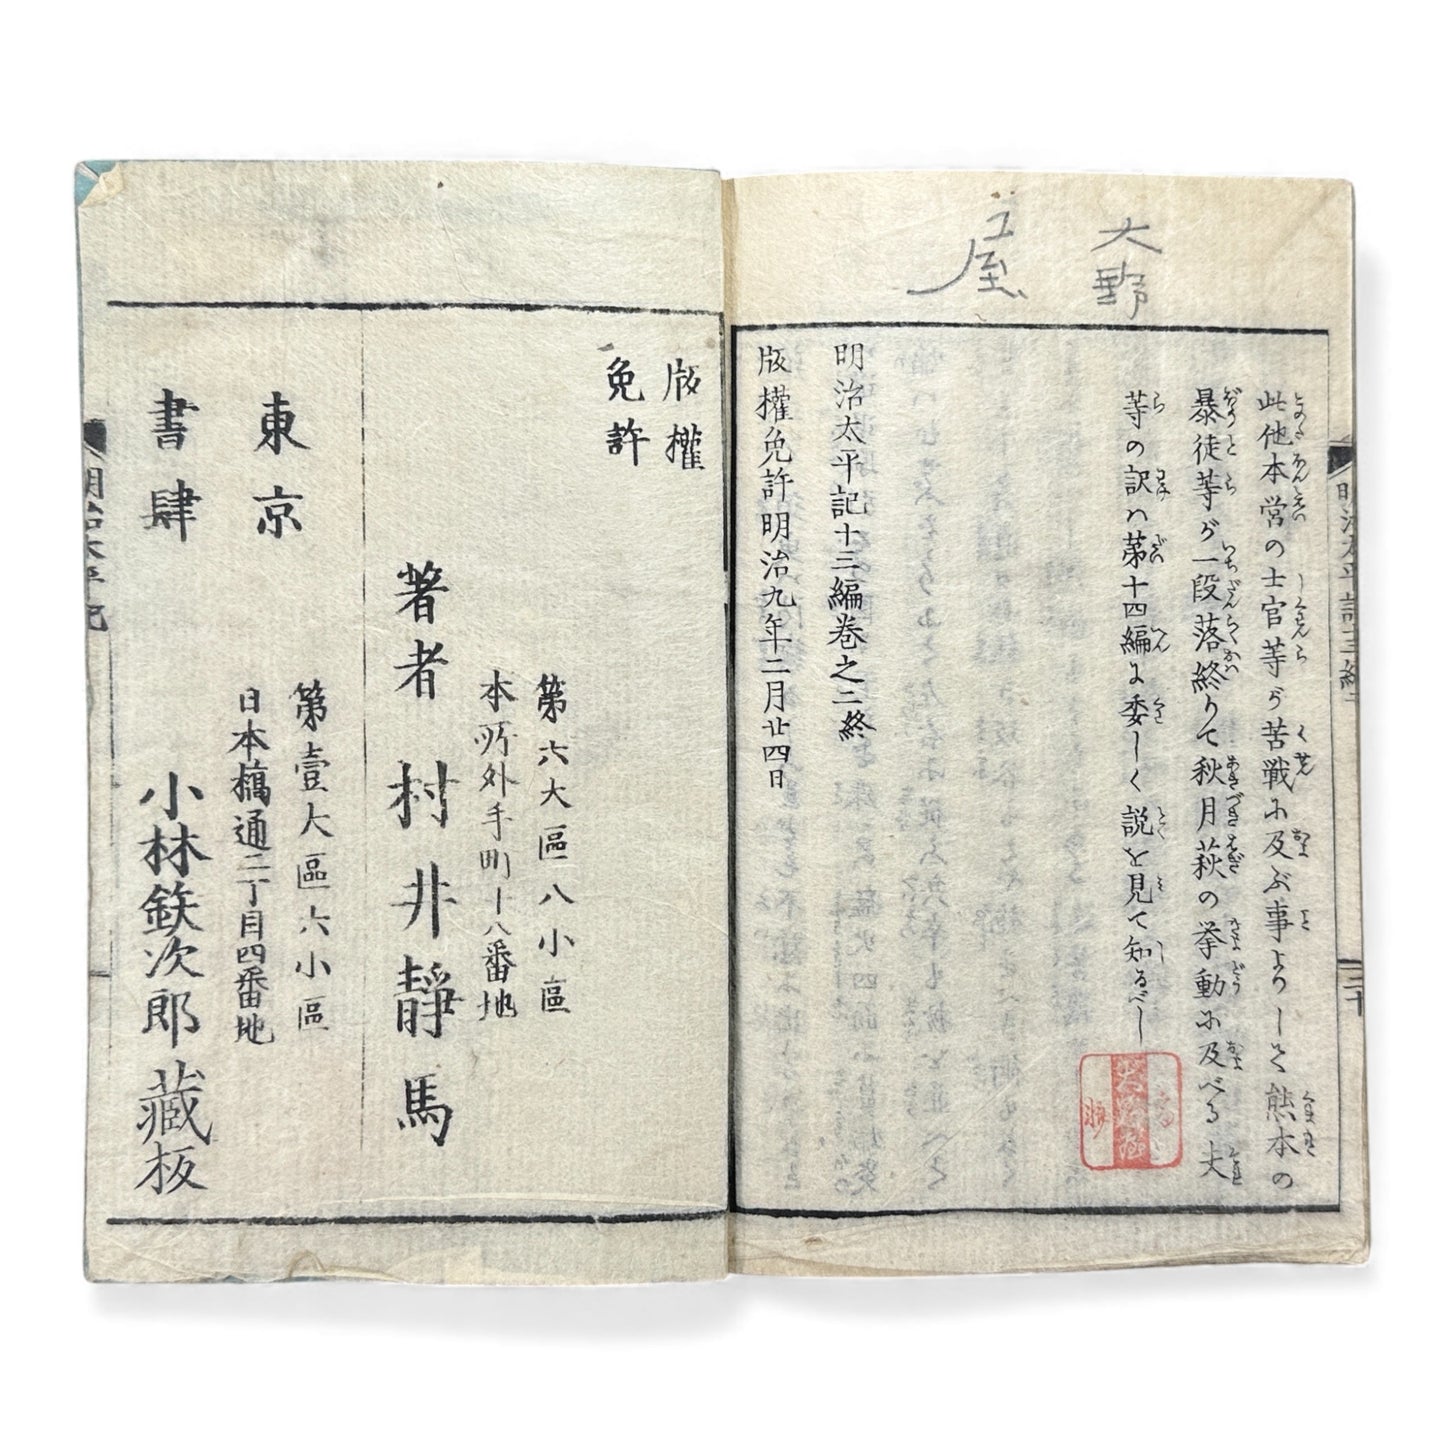 大野
屋
此他本営の士官等が苦戦に及ぶ事よりして熊本の
暴徒等が一段落終りて秋月萩の挙動に及べる夫
等の訳は第十四編に委しく説を見て知るべし
明治太平記十三編巻之二終
版權免許明治九年二月廿四日
明治太平記十三編
二十
版權
免許
第六大區八小區
本所外手町十八番地
著者 村井靜馬
第壹大區六小區
日本橋通二丁目四番地
東京
書肆
小林鉄次郎藏板
明治太平記